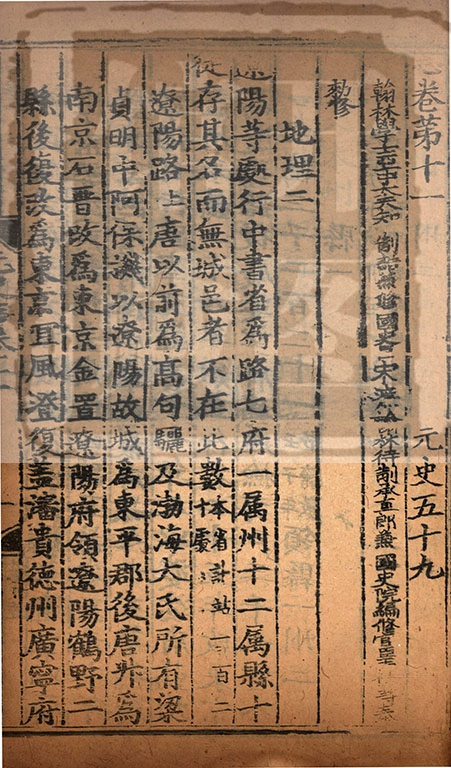 志卷第十一　元史五十九
翰林學士亞中大夫知制誥兼修國史宋濂　待制承直郎兼國史院編修官王
勑修
地理二
遼陽等處行中書省為路七府一属州十二属縣十
徒存其名而無城邑者不在此數本省計站一百二十處
遼陽路上唐以前為髙句驪及渤海大氏所有梁
貞明中阿保機以遼陽故城為東平郡後唐升為
南京石晉改為東京金置遼陽府領遼陽鶴野二
縣後復改為東京宜風澄復蓋瀋貴德州廣寧府